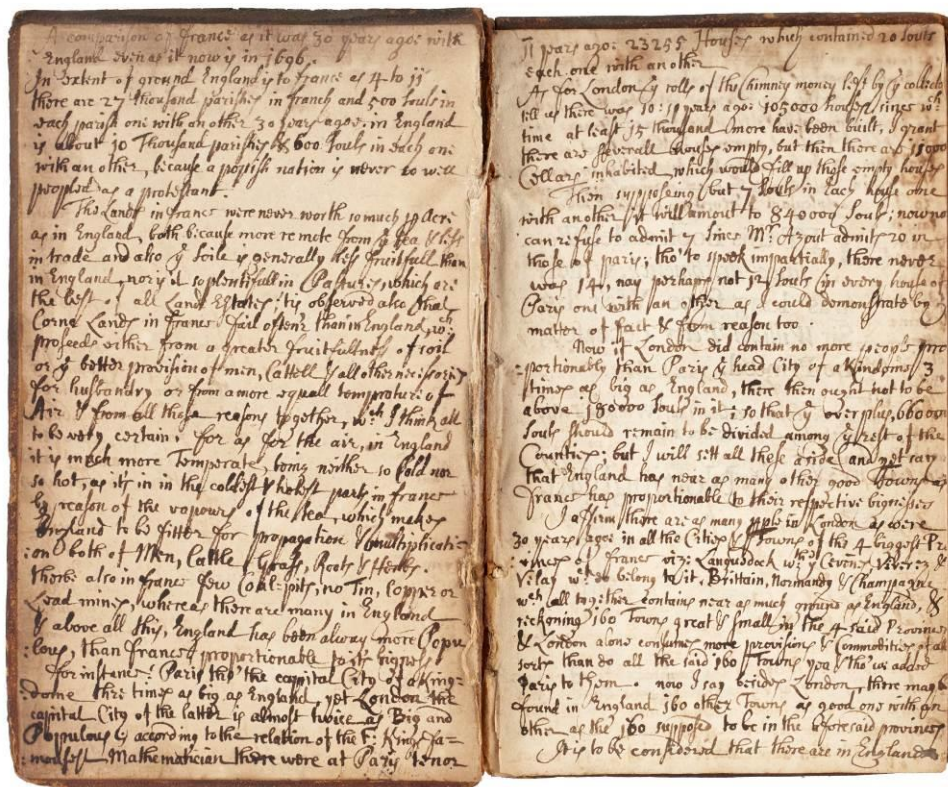 A comparison of france as it was 30 years agoe with
England even as it now is in 1696.
In Extent of ground England is to france as 4 to 11
there are 27 thousand parishes in franch and 500 Souls in
each parish one with an other 30 years agoe: in England
is about 10 Thousand parishes & 600 Souls in each one
with an other, because a popish nation is never so well
peopled as a protestant.
The Lands in france were never worth so much p Acre
as in England, both because more remote from ye sea & less
in trade and also ye soile is generally less fruitfull than
in England, nor is it so plentifull in Pastures which are
the best of all Land Estates; tis observed also that
Corne Lands in france fail oft'ner than in England, wch:
proseeds either from a greater fruitfullness of soil
or ye better provision of men, Cattell & all other necissories
for husbandry or from a more equall temprature of
Air & from all those reasons together, wch I think all
to be very certain; for as for the air, in England
it is much more Temperate, being neither so Cold nor
so hot, as its in in the coldest & hotest parts in france
by reason of the vopours of the sea, which makes
England to be fitter for propagation & multiplicati=
:on both of Men, Cattle Grass, Roots & Herbs.
therbe also in france few Coal-pits, no Tin, Copper or
Lead mines, whereas there are many in England
& above all this, England has been always more Popu
:lous, than france proportionable to its bigness
for instance: Paris tho' the capital City of a King=
:dome three times as big as England, yet London the
capital City of the latter is almost twice as Big and
Populous & according to the relation of the F: Kings fa=
:mousest Mathematician there were at Paris
11 years agoe 23255 Houses which contained 20 Souls
each one with another
As for London ye rolls of the chimney money kept by ye collecto
tell us there was 10: 11 years agoe 105000 houses, since wch:
time at least 15 thousand more have been built, I grant
there are severall houses empty, but then there are 15000
Cellars inhabited which would fill up those empty houses
Then supposing but 7 Souls in each house one
with another it will amount to 840000 Souls; now no
can refuse to admit 7 since Mr. Azout admits 20 in
those of paris; tho' to speek impartially, there never
was 14, nay perhaps not 12 Souls in every house of
Paris one with an other as I could demonstrate by
matter of fact & from reason too.
Now if London did contain no more people pro
:portionably than Paris ye head City of a Kindome 3
times as big as England, there then ought not to be
above 180000 Souls in it; so that ye overplus, 660000
Souls should remain to be divided among ye rest of the
Counties; but I will sett all these aside and yet say
that England has near as many other good Towns as
france has proportionable to their respective bignesses
I affirm there are as many people in London as were
30 years agoe in all the Cities & Towns of the 4 biggest Pr
:vinces of france viz: Languedock wth ye Cevenes Viverez &
Velay wch do belong to it, Brittain, Normandy & Champagne
wch all together contains near as much ground as England, &
reckoning 160 Towns great & small in the 4 said Provinces
& London alone consumes more provisions & Commodities of all
sorts than do all the said 160 Towns yea tho' we added
Paris to them. now I say besides London, there may be
found in England 160 other Towns as good one with an
other as the 160 suppose to be in the aforesaid provinces
It is to be considered that there are in England